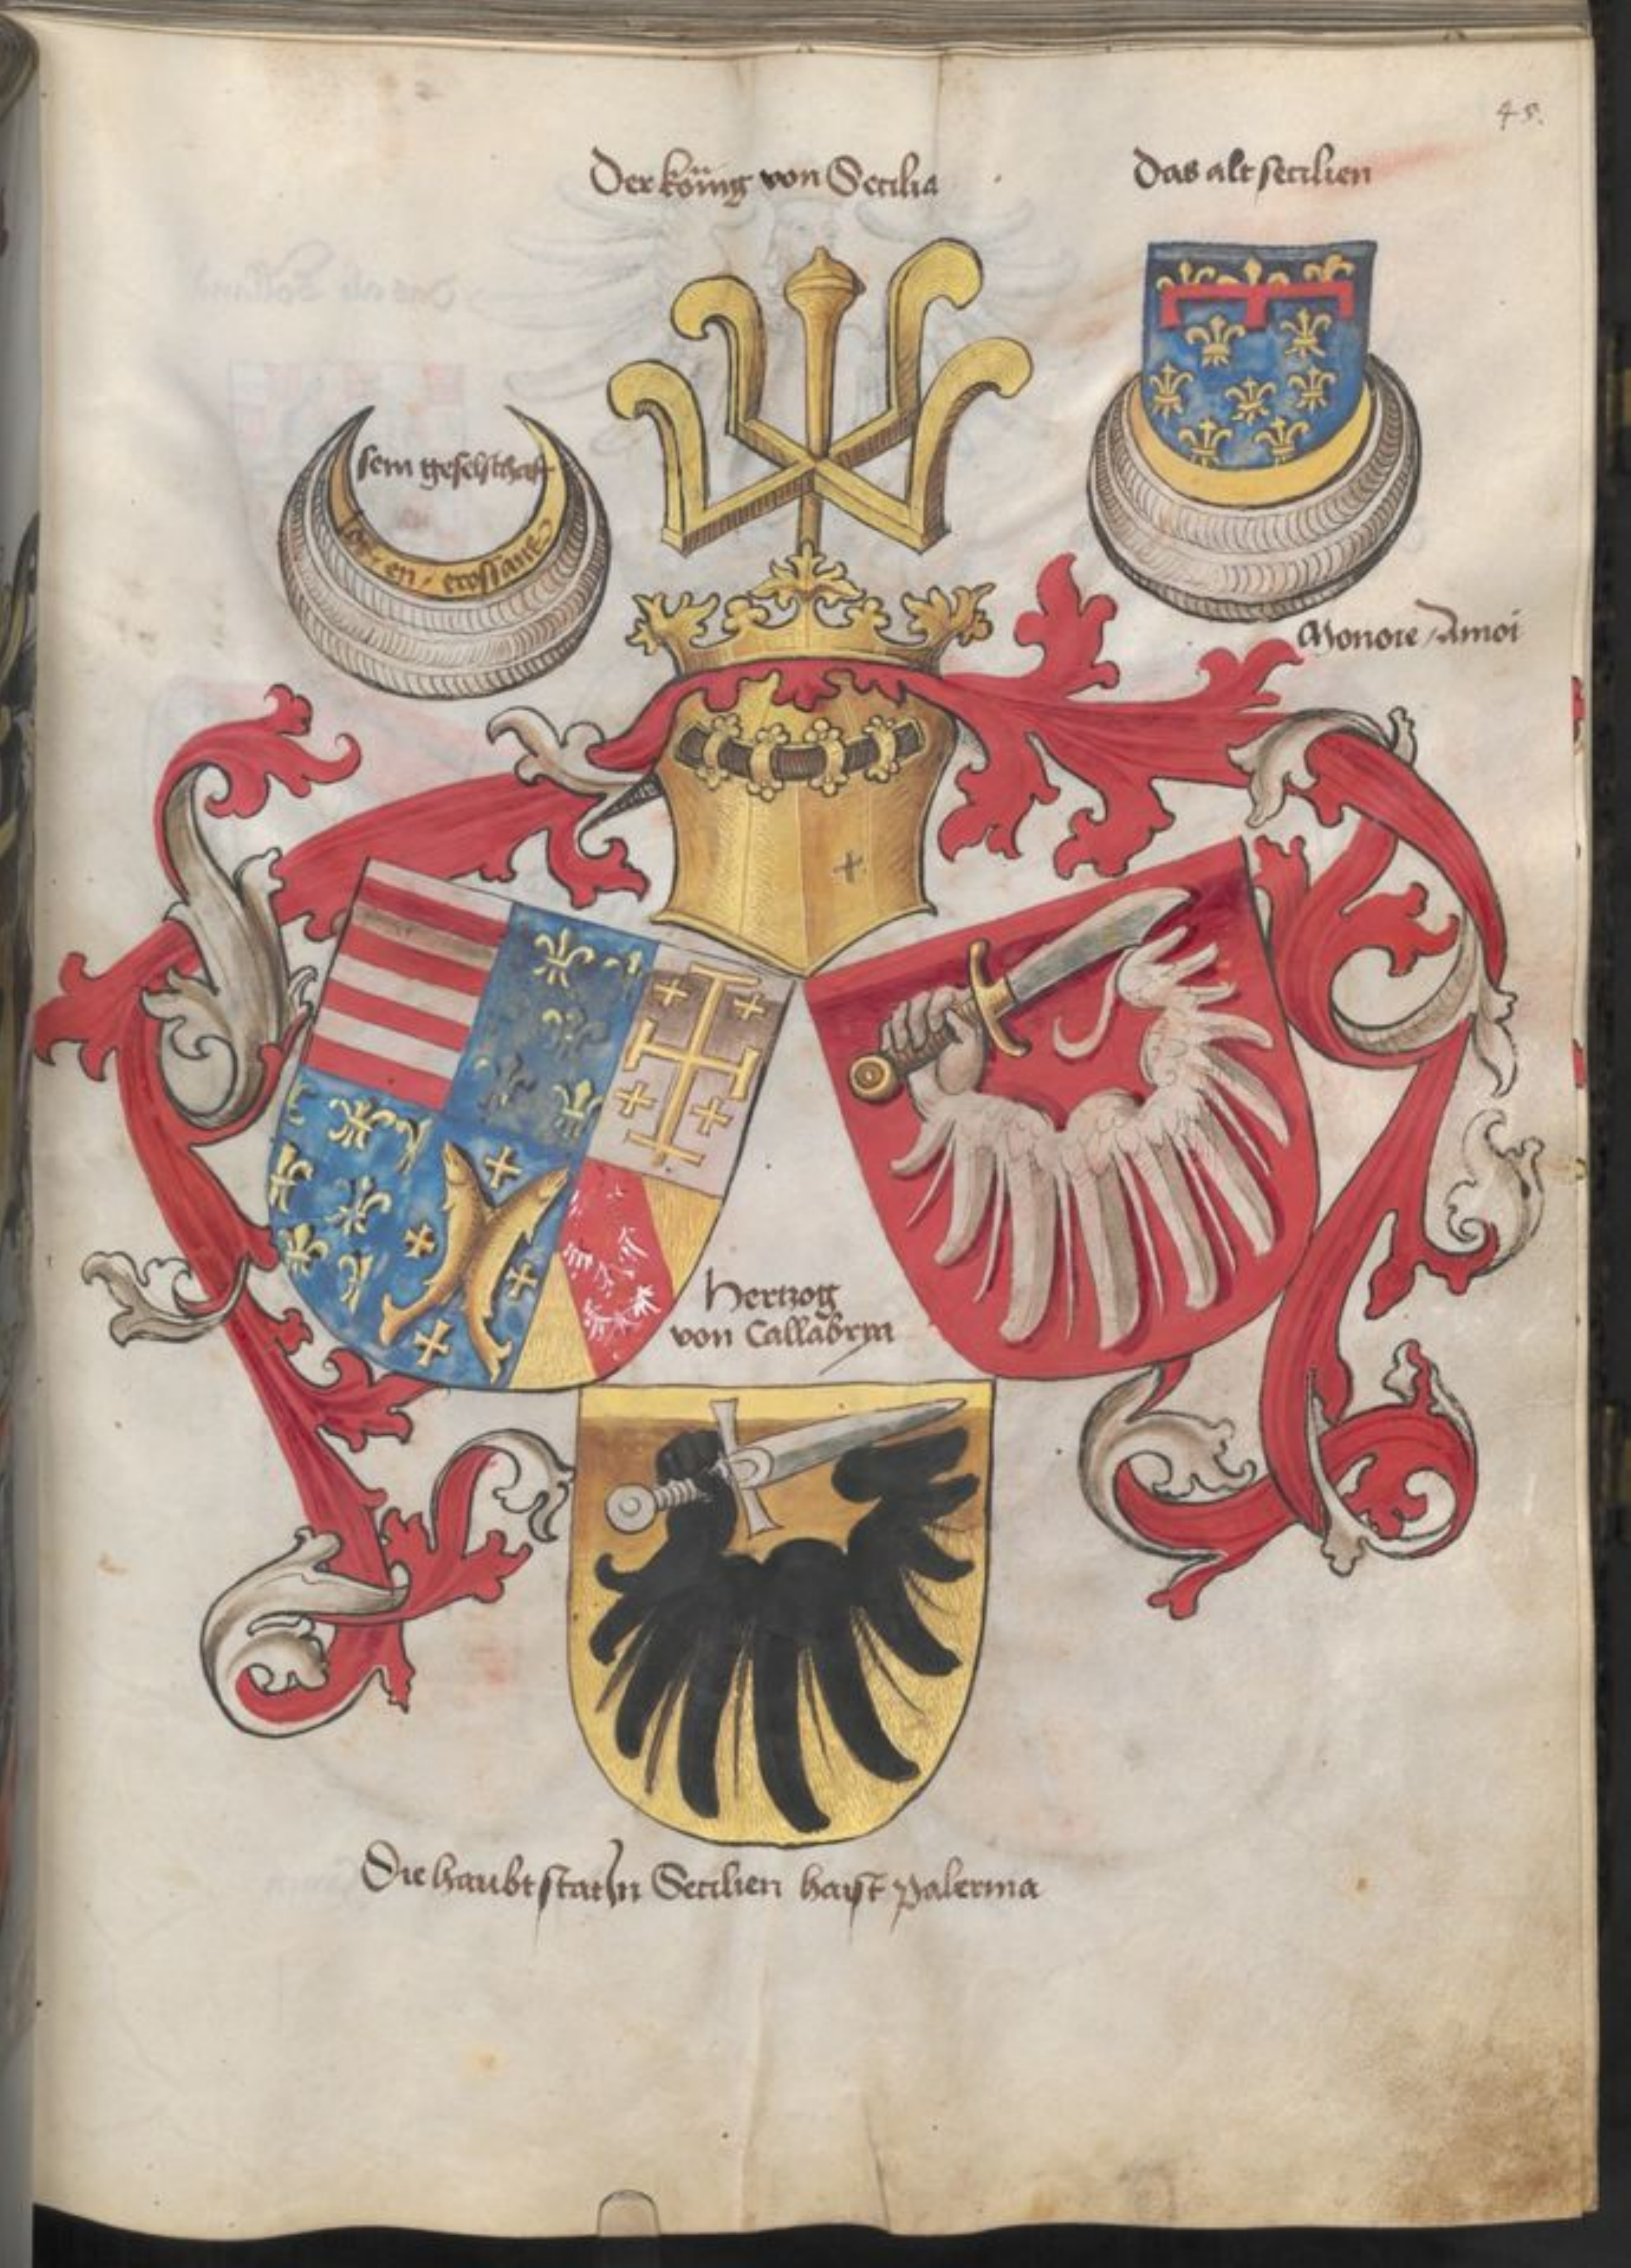 45.
Der köing von Secilia
Das alt secilien
sein geselschaft
en
Monore Amoi
Hertzog
von Callabria
Die haubtstat In Secilien haist palerma